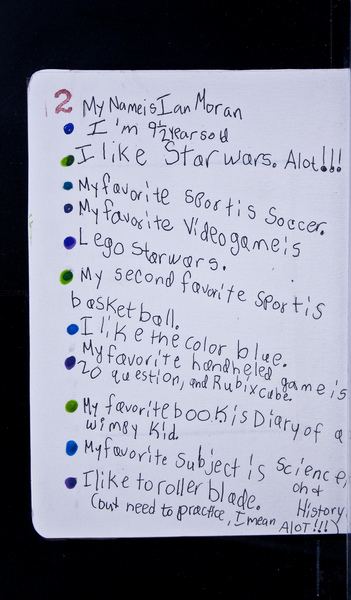 2 My Name is Ian Moran
I'm 9½ years old
I like Star wars. Alot!!!
My favorite sport is Soccer.
My favorite Video game is
Lego Starwars.
My second favorite sport is
basketball.
I like the color blue.
My favorite handheled game is
20 question, and Rubix cube.
My favorite book is Diary of a
wimby Kid.
My favorite subject is science,
and History
I like to roller blade.
(but need to practice, I mean ALOT!!!)